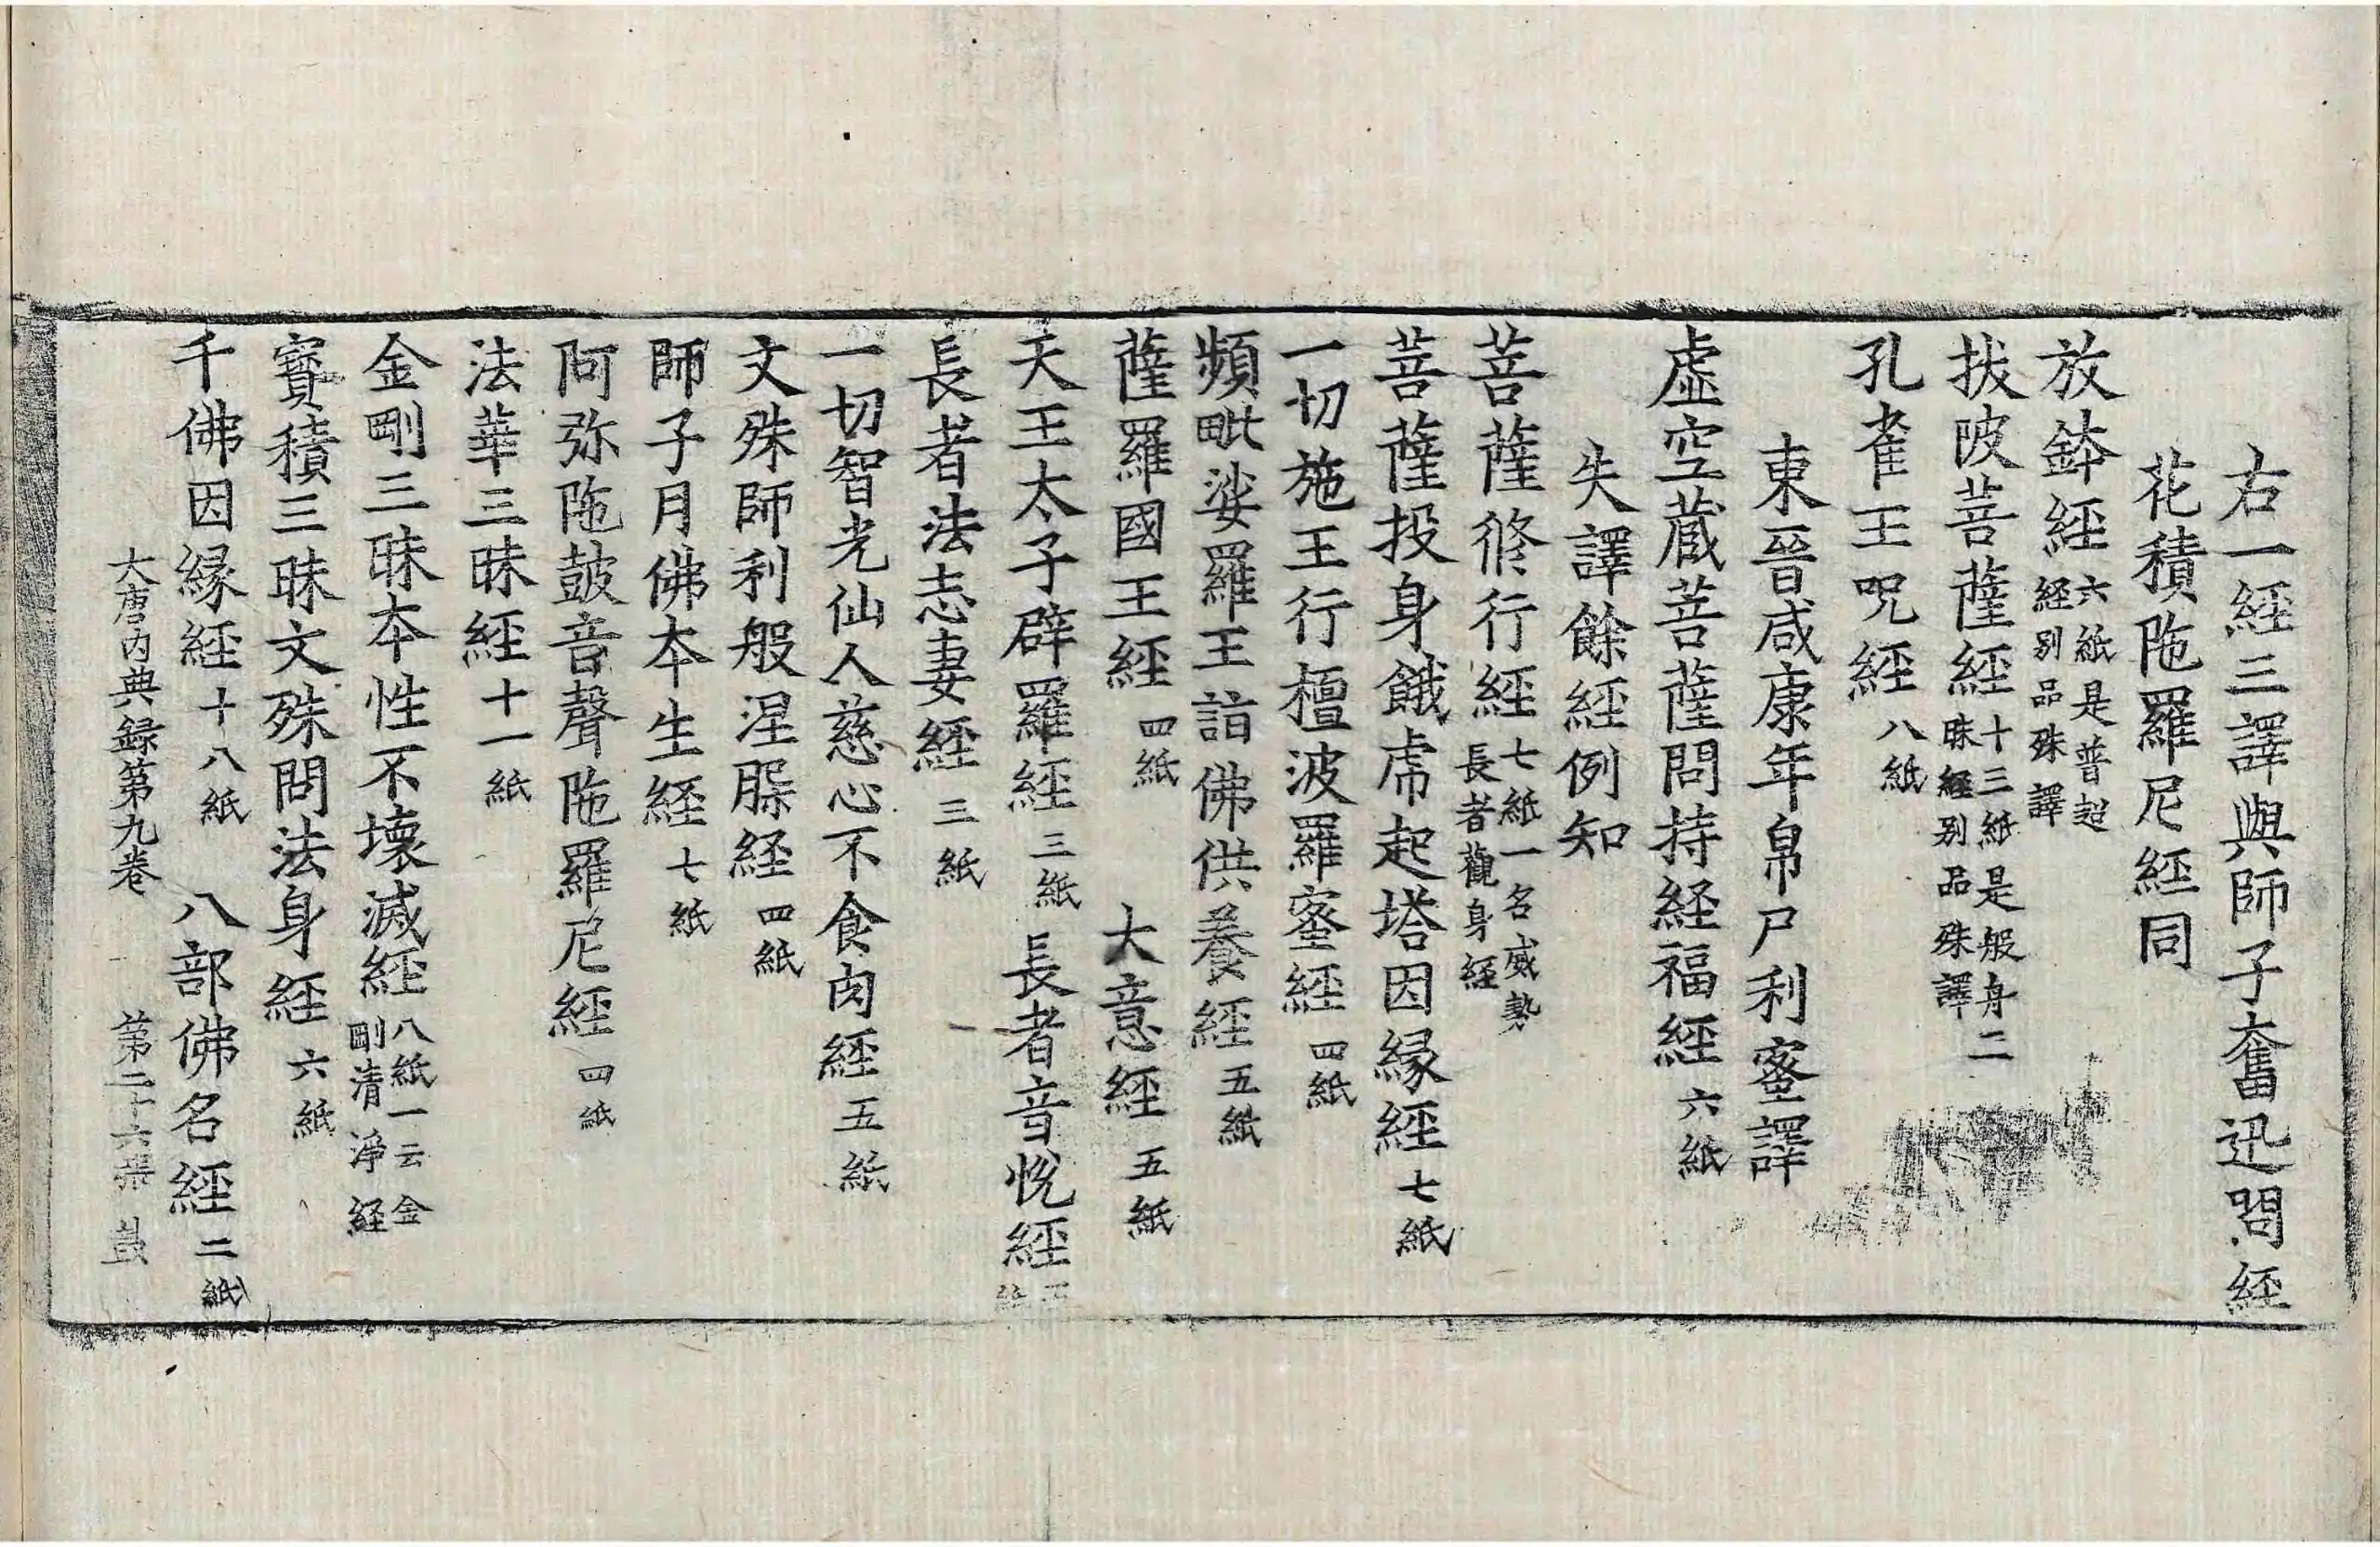 右一經三譯與師子奮迅問經
花積陁羅尼經同
放鉢經六紙是普超經别品殊譯
拔陂菩薩經十三紙是般舟三昧經别品殊譯
孔雀王呪經八紙
東晉咸康年帛尸利蜜譯
虛空蔵菩薩問持経福經六紙
失譯餘經例知
菩薩修行經七紙一名威勢長者觀身經
菩薩投身餓虎起塔因縁經七紙
一切施王行檀波羅蜜經四紙
頻毗娑羅王詣佛供養經五紙
薩羅國王經四紙 大意經五紙
天王太子辟羅經三紙 長者音恱經五紙
長者法志妻經三紙
一切智光仙人慈心不食肉經五紙
文殊師利般涅槃経四紙
師子月佛夲生経七紙
阿弥陁鼓音聲陁羅尼經四紙
法華三昧經十一紙
金剛三昧夲性不壞滅經八紙一云金剛清淨経
寳積三昧文殊問法身經六紙
千佛因縁經十八紙 八部佛名經二紙
大唐内典録第九卷 第二十六張